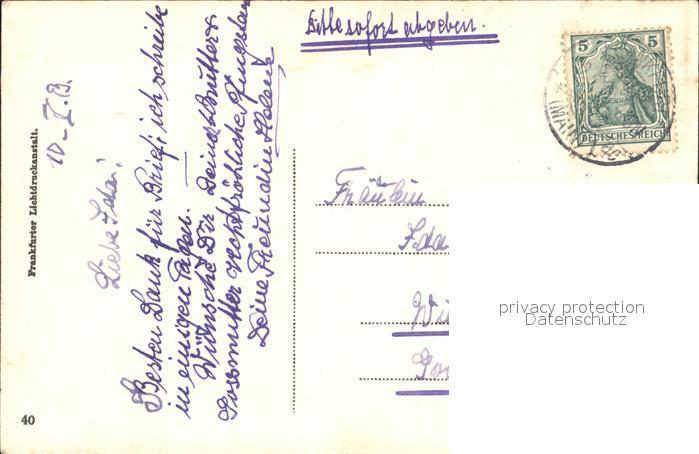 Bitte sofort abgeben.
10-V.13.
Liebe Ida!
Besten Dank für Brief; ich schreibe
in einigen Tagen.
Wünsche Dir Deiner Mutter u.
Grossmutter recht fröhliche Pfingsten
Deine Freundin Helene
Frankfurter Lichtdruckanstalt.
40
5 5
DEUTSCHES REICH
(MAIN)
Fräulein
Ida
privacy protection
Datenschutz